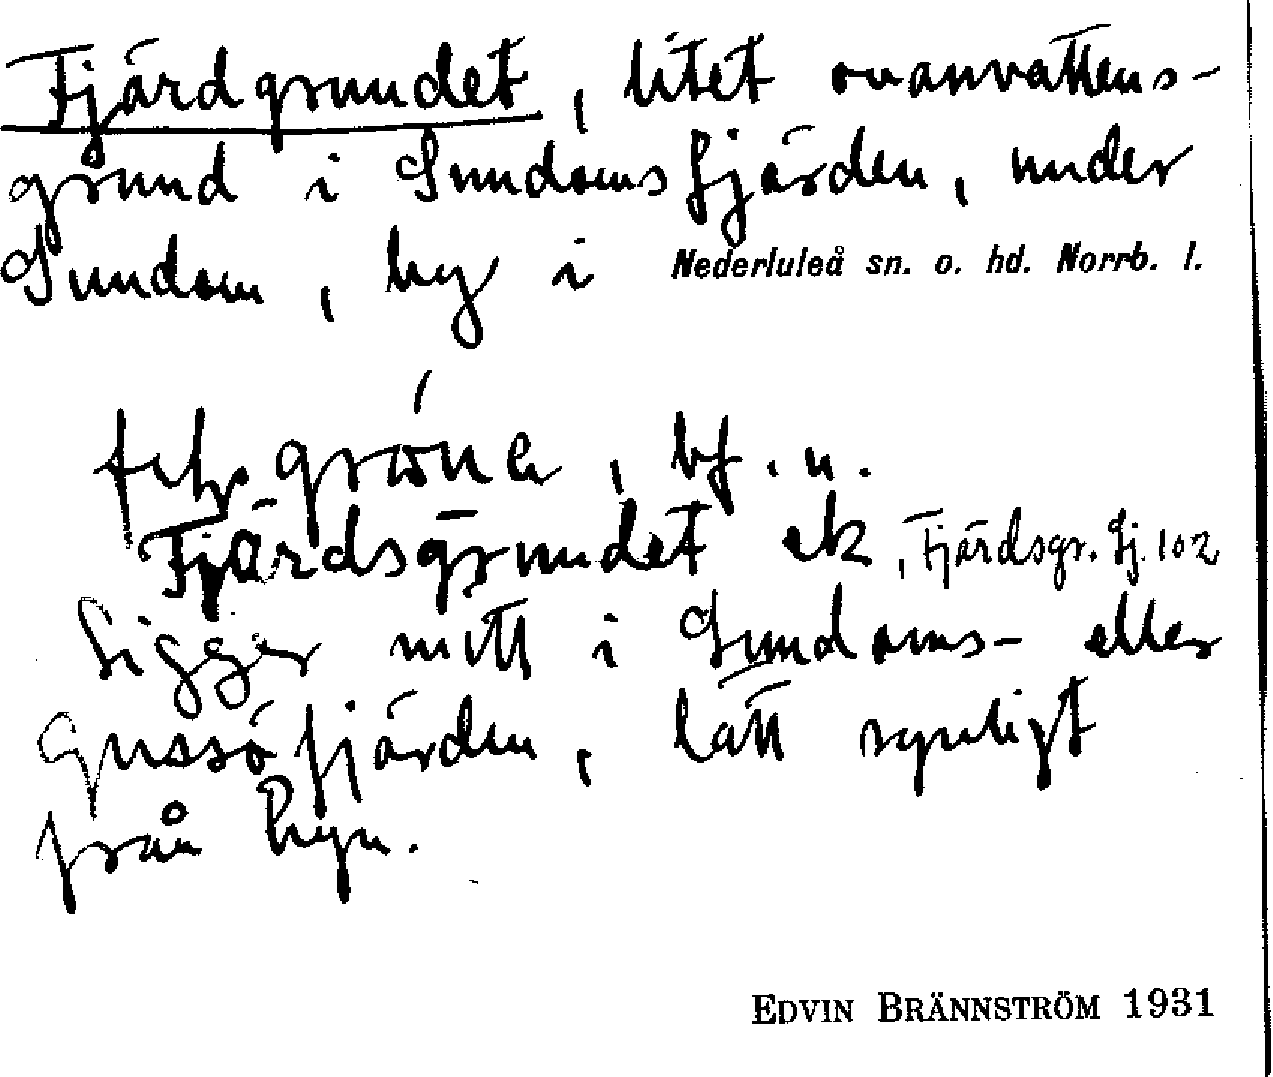 Fjärdgrundet, litet ovanvattens-
grund i Sundomsfjärden, under
Sundom, by i Nederluleå sn. o. hd. Norrb. l.
bf. u.
Fjärdsgrundet ek, Fjärdsgr. Sj. 102
Ligger mitt i Sundoms- eller
Gussöfjärden, lätt synligt
från byn.
EDVIN BRÄNNSTRÖM 1931